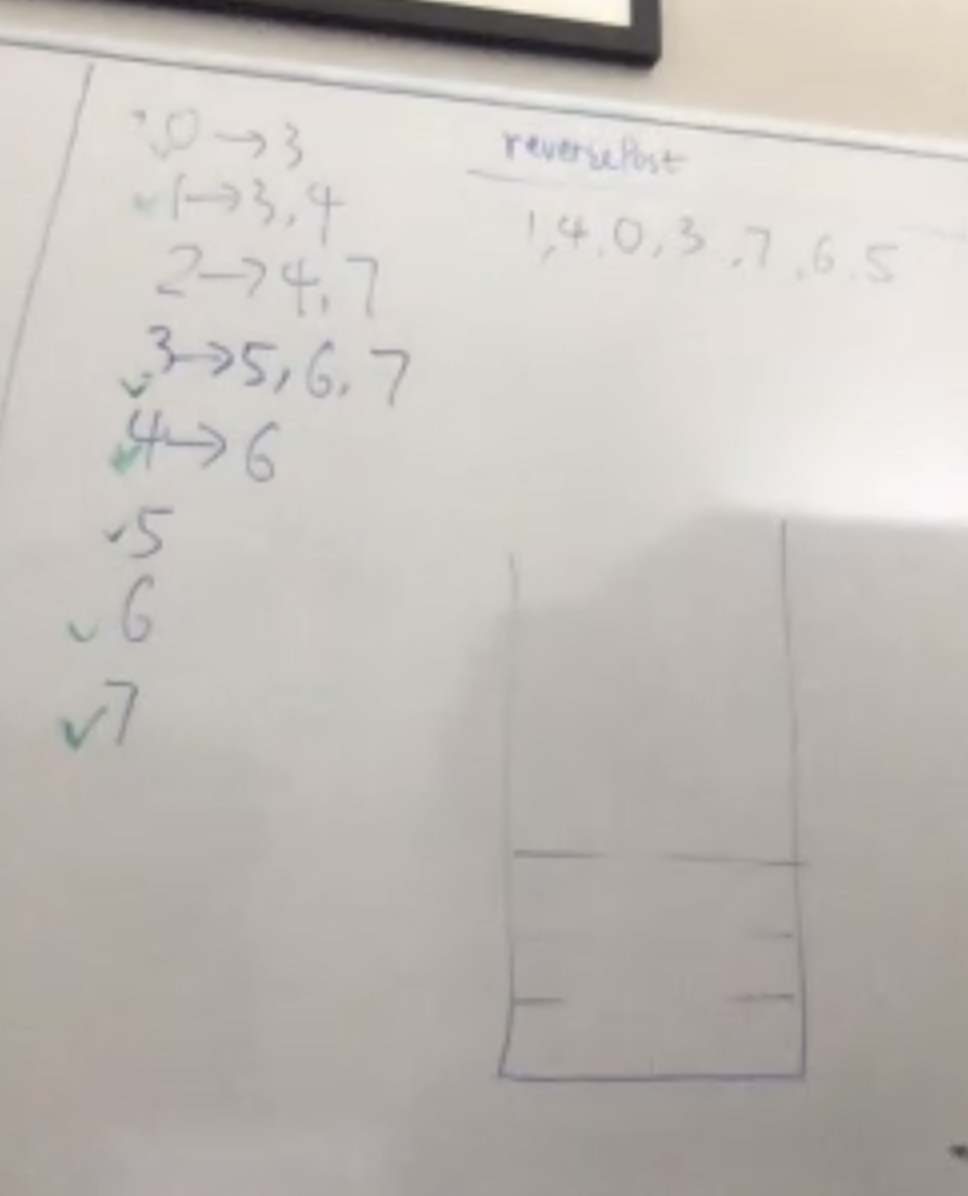 0→3
1→3,4
2→4,7
3→5,6,7
4→6
5
6
7
reversePost
1,4,0,3,7,6,5